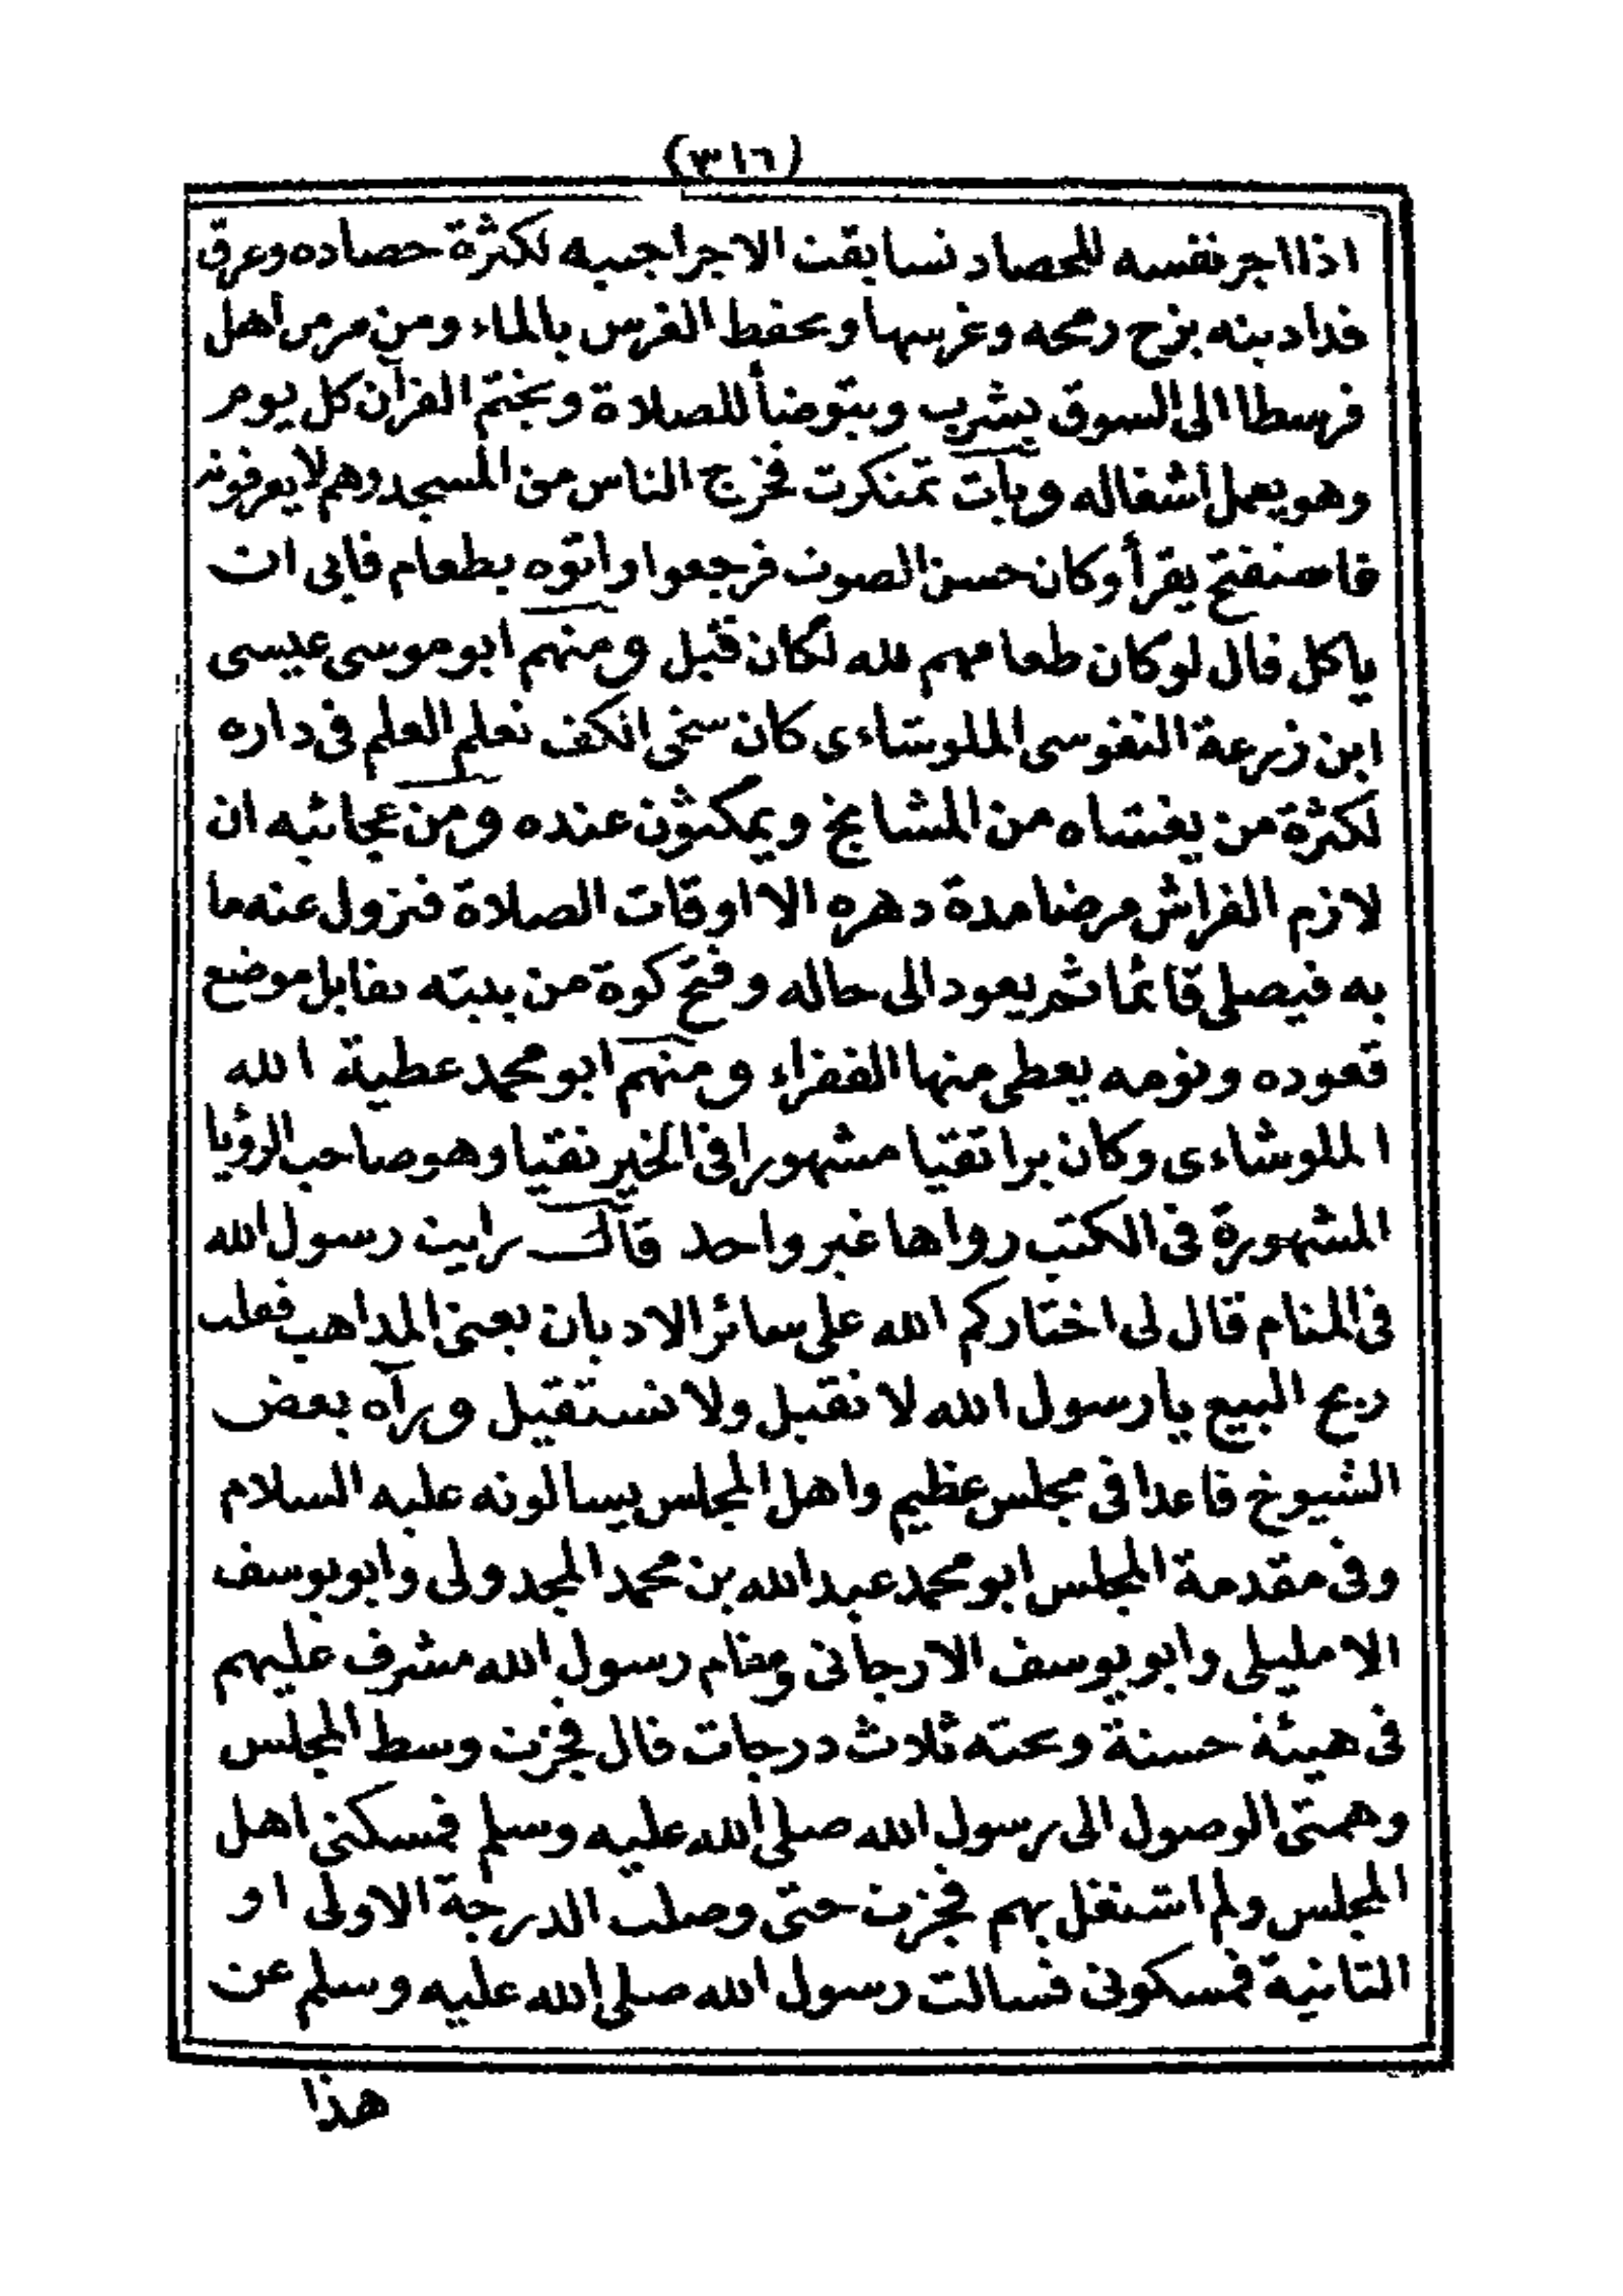 (٣١٦)
اذا اجر نفسه للحصاد تسابقت الاجراجبيه لكثرة حصاده وعرق
فدادينه بزج رمحه وغرسها ويحفط الغرس بالماء ومن مر من اهل
فرسطا الى السوق يشرب ويتوضأ للصلاة ويختم القرآن كل يوم
وهو يعمل اشغاله وبات تمنكرت فخرج الناس من المسجد وهم لا يعرفونه
فاستفتح يقرأ وكان حسن الصوت فرجعوا واتوه بطعام فابى ان
ياكل قال لو كان طعامهم لله لكان قبل ومنهم ابو موسى عيسى
ابن زرعة النفوسى الملوشاءى كان سخى الكف تعلم العلم فى داره
لكثرة من يغشاه من المشايخ ويمكثون عنده ومن عجائبه ان
لازم الفراش مرضا مدة دهره الا اوقات الصلاة فتزول عنه ما
به فيصلى قائما ثم يعود الى حاله وفتح كوة من بيته تقابل موضع
قعوده ونومه يعطى منها الفقراء ومنهم ابو محمد عطية الله
الملوشاءى وكان برا تقيا مشهورا فى الخير نقيا وهو صاحب الرؤيا
المشهورة فى الكتب رواها غير واحد قال رايت رسول الله
فى المنام قال لى اختاركم الله على سائر الاديان يعنى المذاهب فقلت
ربح البيع يا رسول الله لا نقيل ولا نستقيل ورآه بعض
الشيوخ قاعدا فى مجلس عظيم واهل المجلس يسالونه عليه السلام
وفى مقدمة المجلس ابو محمد عبد الله بن محمد المجدولى وابو يوسف
الامليلى وابو يوسف الارجانى ومقام رسول الله مشرف عليهم
فى هيئة حسنة وتحته ثلاث درجات قال فجزت وسط المجلس
وهمتى الوصول الى رسول الله صلى الله عليه وسلم فمسكنى اهل
المجلس ولم اشتغل بهم فجزت حتى وصلت الدرجة الاولى او
الثانية فمسكونى فسالت رسول الله صلى الله عليه وسلم عن
هذا